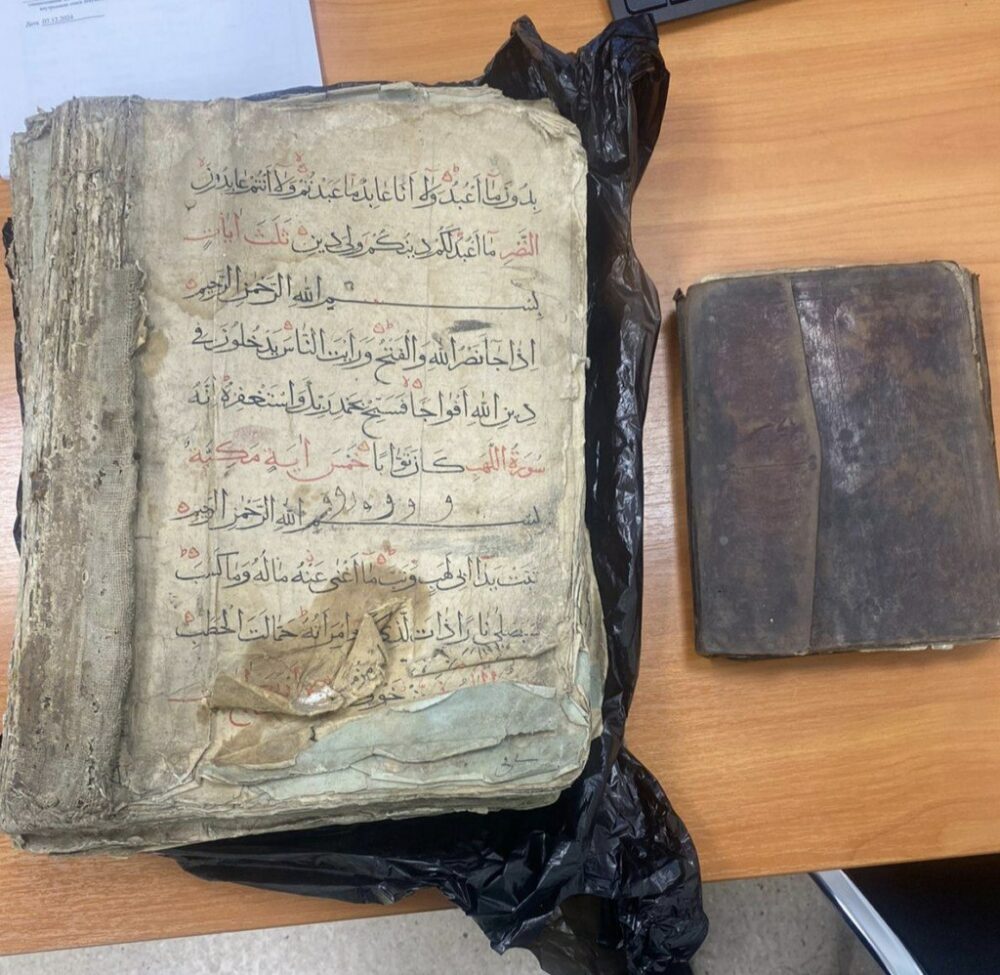 Дата 07.12.2024
بدون ما اعبد ولا انا عابد ما عبدتم ولا انتم عابدون
ما اعبد لكم دينكم ولي دين النصر ثلث ايات
بسم الله الرحمن الرحيم
اذا جا نصر الله والفتح ورايت الناس يدخلون في
دين الله افواجا فسبح بحمد ربك واستغفره انه
سورة اللهب كان توابا خمس اية مكية
بسم الله الرحمن الرحيم
تبت يدا ابي لهب وتب ما اغنى عنه ماله وما كسب
سيصلى نارا ذات وامراته حمالت الحطب